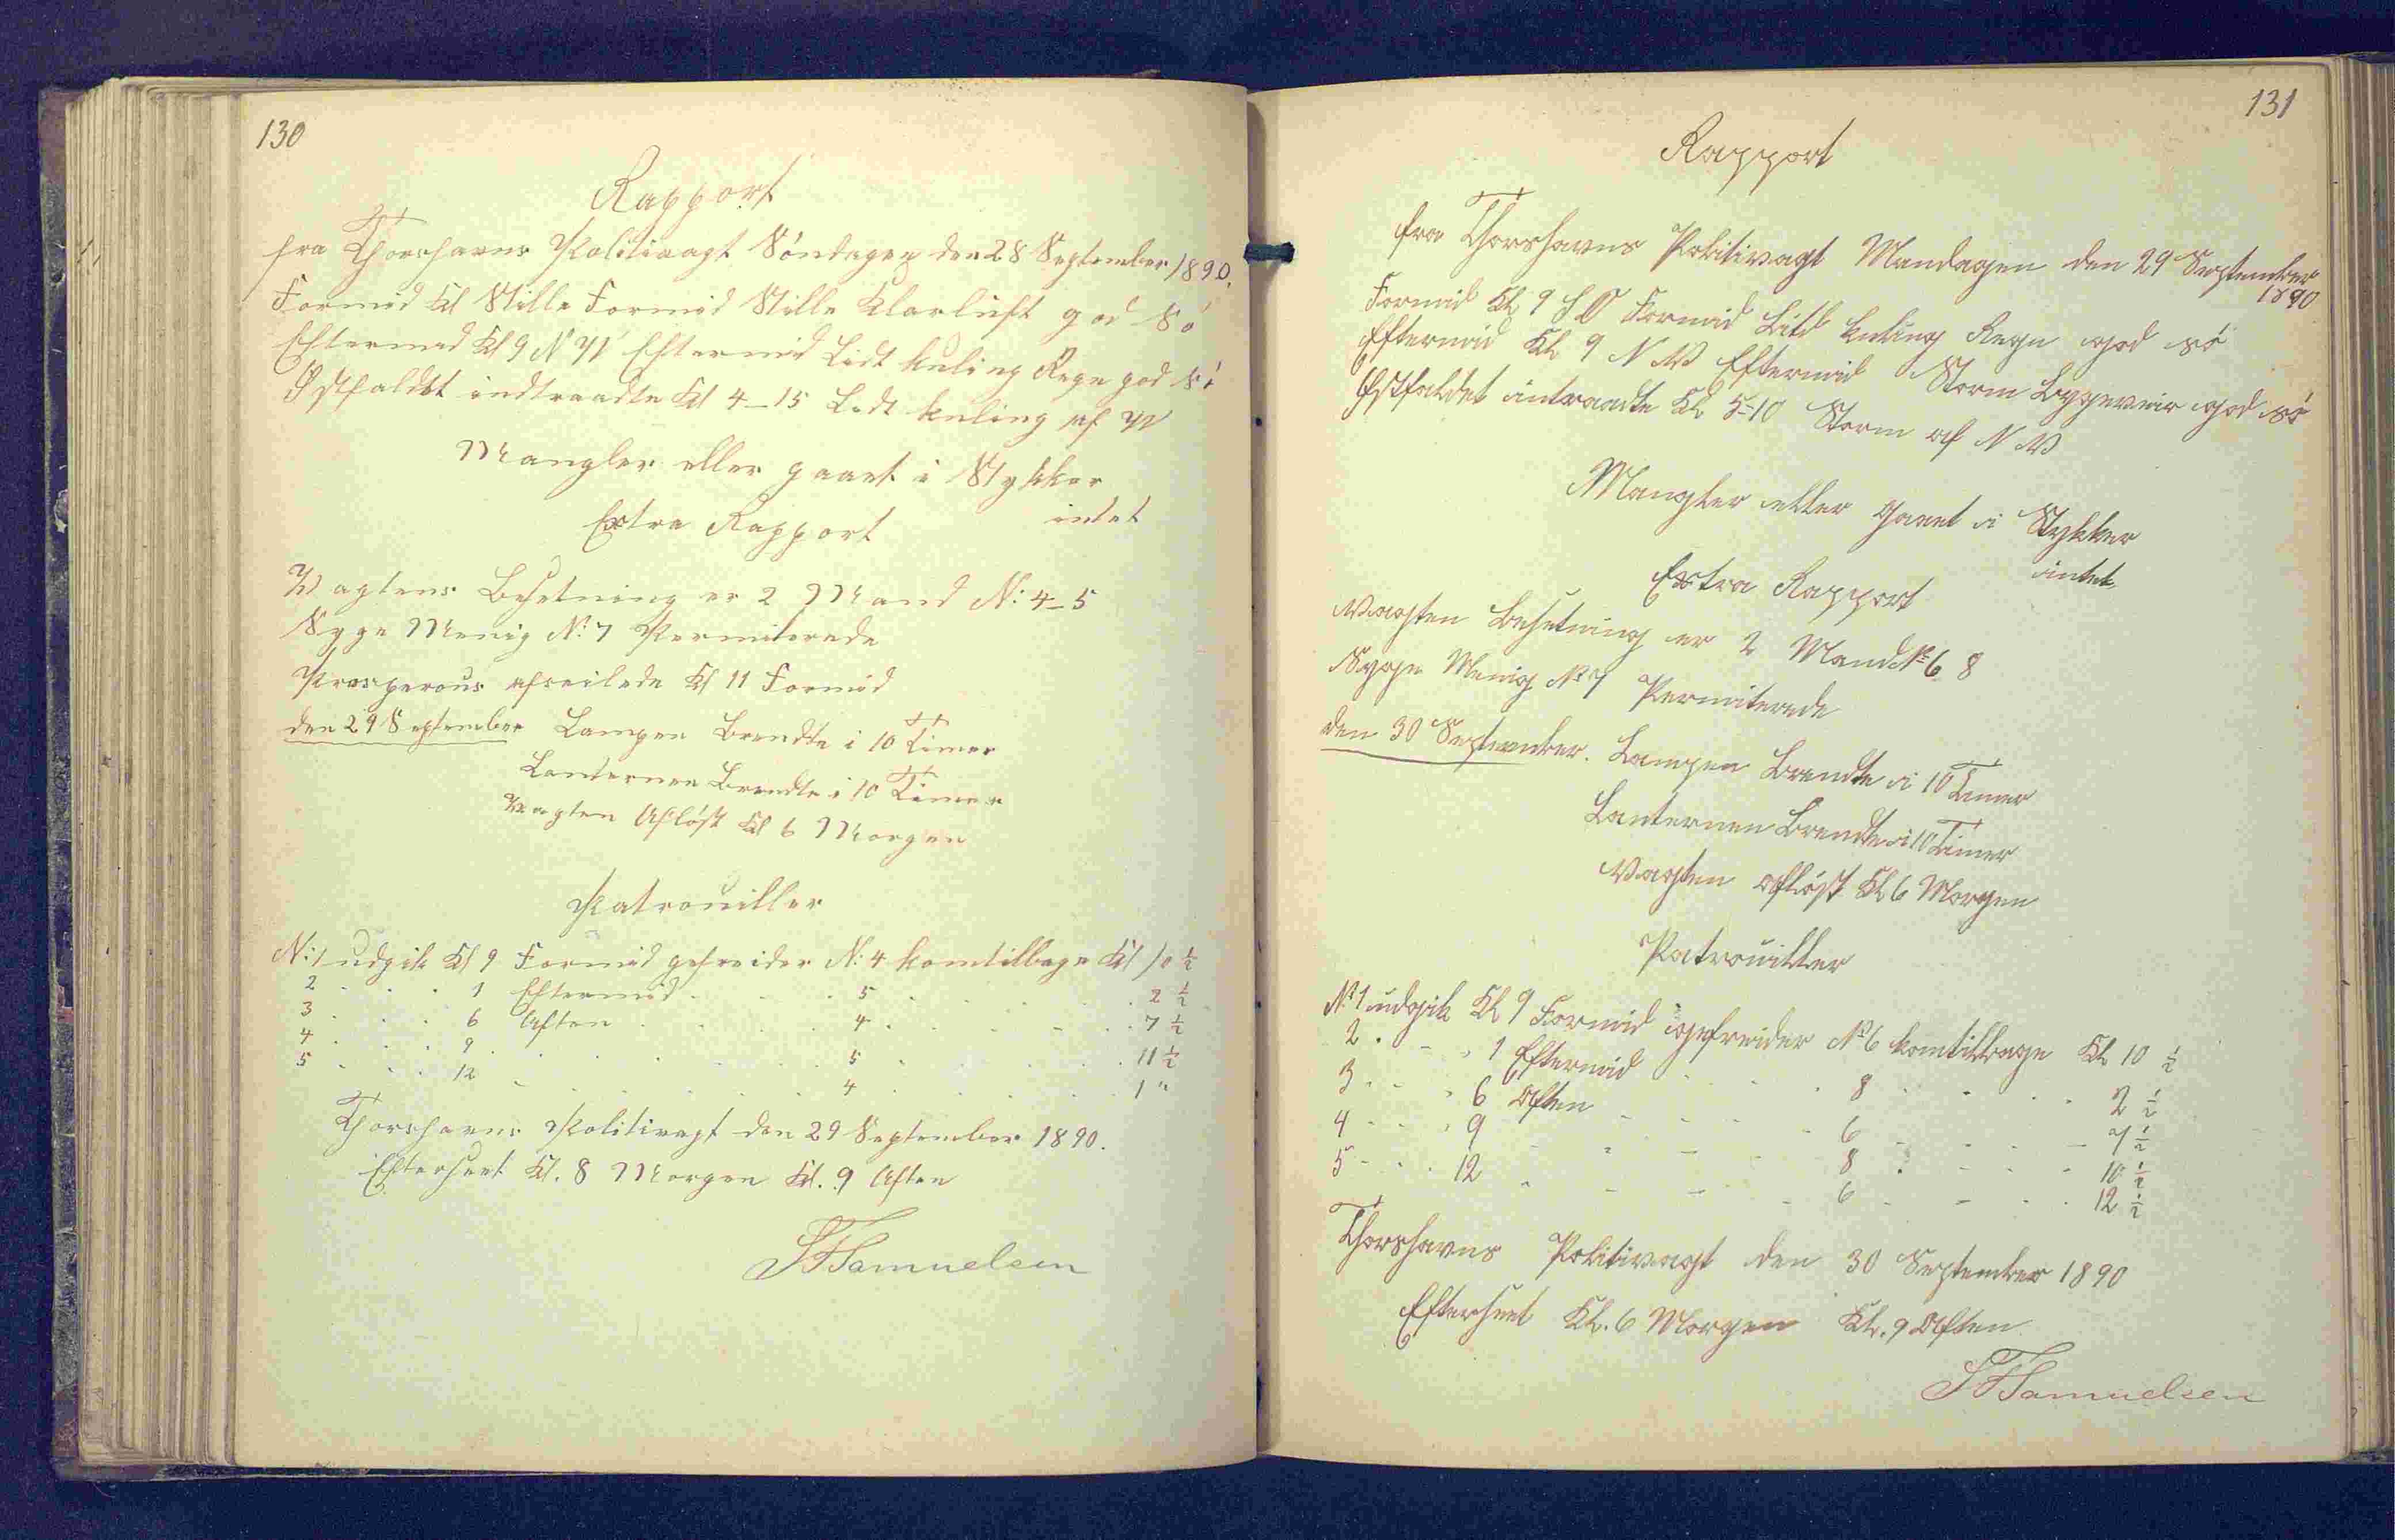 130
Rapport
fra Thorshavns Politivagt Söndagen den 28 September 1890.
Formid Kl Stille Formid Stille Klarluft god Sö
Eftermid Kl 9 N W Eftermid Lidt kuling Regn god Sö
Östfaldet indtraadte Kl 4-15 Lidt kuling af W
Mangler eller gaaet i Stykker
intet
Extra Rapport
Vagtens Besetning er 2 Mand No 4-5
Syge Menig No 7 Permiterede
Prosperous afseilede Kl 11 Formid
den 29 September Lampen Brendte i 10 Timer
Lanternen Brendte i 10 Timer
Vagten Aflöst Kl 6 Morgen
Patrouiller
No 1 udgik Kl 9 Formid gefreider No 4 kom tilbage Kl 10 ½
2 . . . 1 Eftermid . . . 5 . . . 2 ½
3 . . . 6 Aften . . . 4 . . . 7 ½
4 . . . 9 . . . 5 . . . 11 ½
5 . . . 12 . . . 4 . . . 1 "
Thorshavns Politivagt den 29 September 1890.
Efterseet Kl. 8 Morgen Kl. 9 Aften
Samuelsen
131
Rapport
fra Thorshavns Politivagt Mandagen den 29 September
1890
Formid Kl 9 S O Formid Lidt kuling Regn god sö
Eftermid Kl 9 N W Eftermid Storm Bygeveir god sö
Östfaldet intraadte Kl 5-10 Storm af N W
Mangler eller gaaet i Stykker
intet
Extra Rapport
Vagten Besetning er 2 Mand No 6 8
Syge Menig No 7 Permiterede
den 30 September. Lampen Brendte i 10 Timer
Lanternen Brendte i 10 Timer
Vagten aflöst Kl 6 Morgen
Patrouiller
No 1 udgik Kl 9 Formid gefreider No 6 kom tilbage Kl 10 ½
2 . . . 1 Eftermid . . . 8 . . . 2 ½
3 . . . 6 Aften . . . 6 . . . 7 ½
4 . . . 9 . . . 8 . . . 10 ½
5 . . . 12 . . . 6 . . . 12 ½
Thorshavns Politivagt den 30 September 1890
Efterseet Kl. 6 Morgen Kl. 9 Aften
Samuelsen